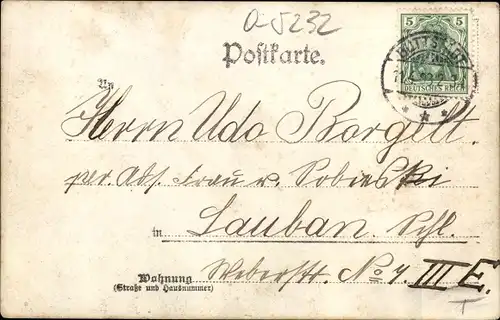 a-5232
Postkarte.
5 5
DEUTSCHES REICH
An
Herrn Udo Borgelt.
per. Ads. Frau v. Sobieski
in Lauban Schl.
Wohnung
(Straße und Hausnummer)
Weberstr. No 4 III E.
T